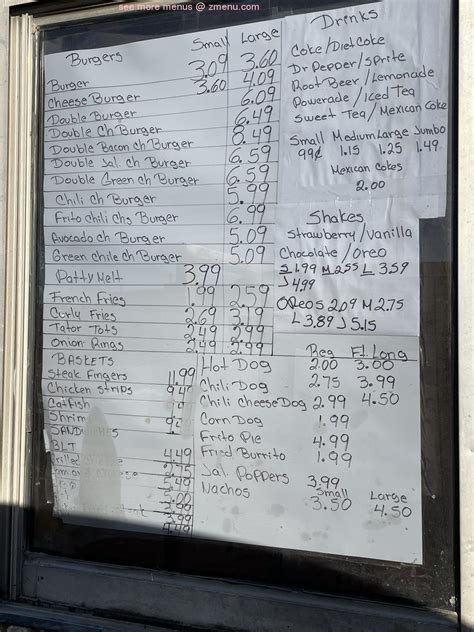 see more menus @ zmenu.com
Burgers Small Large
Burger 3.09 3.60
Cheese Burger 3.60 4.09
Double Burger 6.09
Double Ch Burger 6.49
Double Bacon ch Burger 8.49
Double Jal. ch Burger 6.59
Double Green ch Burger 6.59
Chili ch Burger 5.99
Frito chili chs Burger 6.99
Avocado ch Burger 5.09
Green chile ch Burger 5.09
Patty Melt 3.99
French Fries 1.99 2.59
Curly Fries 2.69 3.19
Tator Tots 2.49 2.99
Onion Rings 2.49 2.99
BASKETS
Steak Fingers 11.99
Chicken strips
Catfish
BLT 4.49
Drinks
Coke/Diet Coke
Dr Pepper/Sprite
Root Beer/Lemonade
Powerade/Iced Tea
Sweet Tea/Mexican Coke
Small Medium Large Jumbo
99¢ 1.15 1.25 1.49
Mexican Cokes
2.00
Shakes
Strawberry/Vanilla
Chocolate/Oreo
S 1.99 M 2.55 L 3.59
J 4.99
Oreo S 2.09 M 2.75
L 3.89 J 5.15
Reg Ft. Long
Hot Dog 2.00 3.00
Chili Dog 2.75 3.99
Chili Cheese Dog 2.99 4.50
Corn Dog 1.99
Frito Pie 4.99
Fried Burrito 1.99
Jal Poppers 3.99
Small Large
Nachos 3.50 4.50